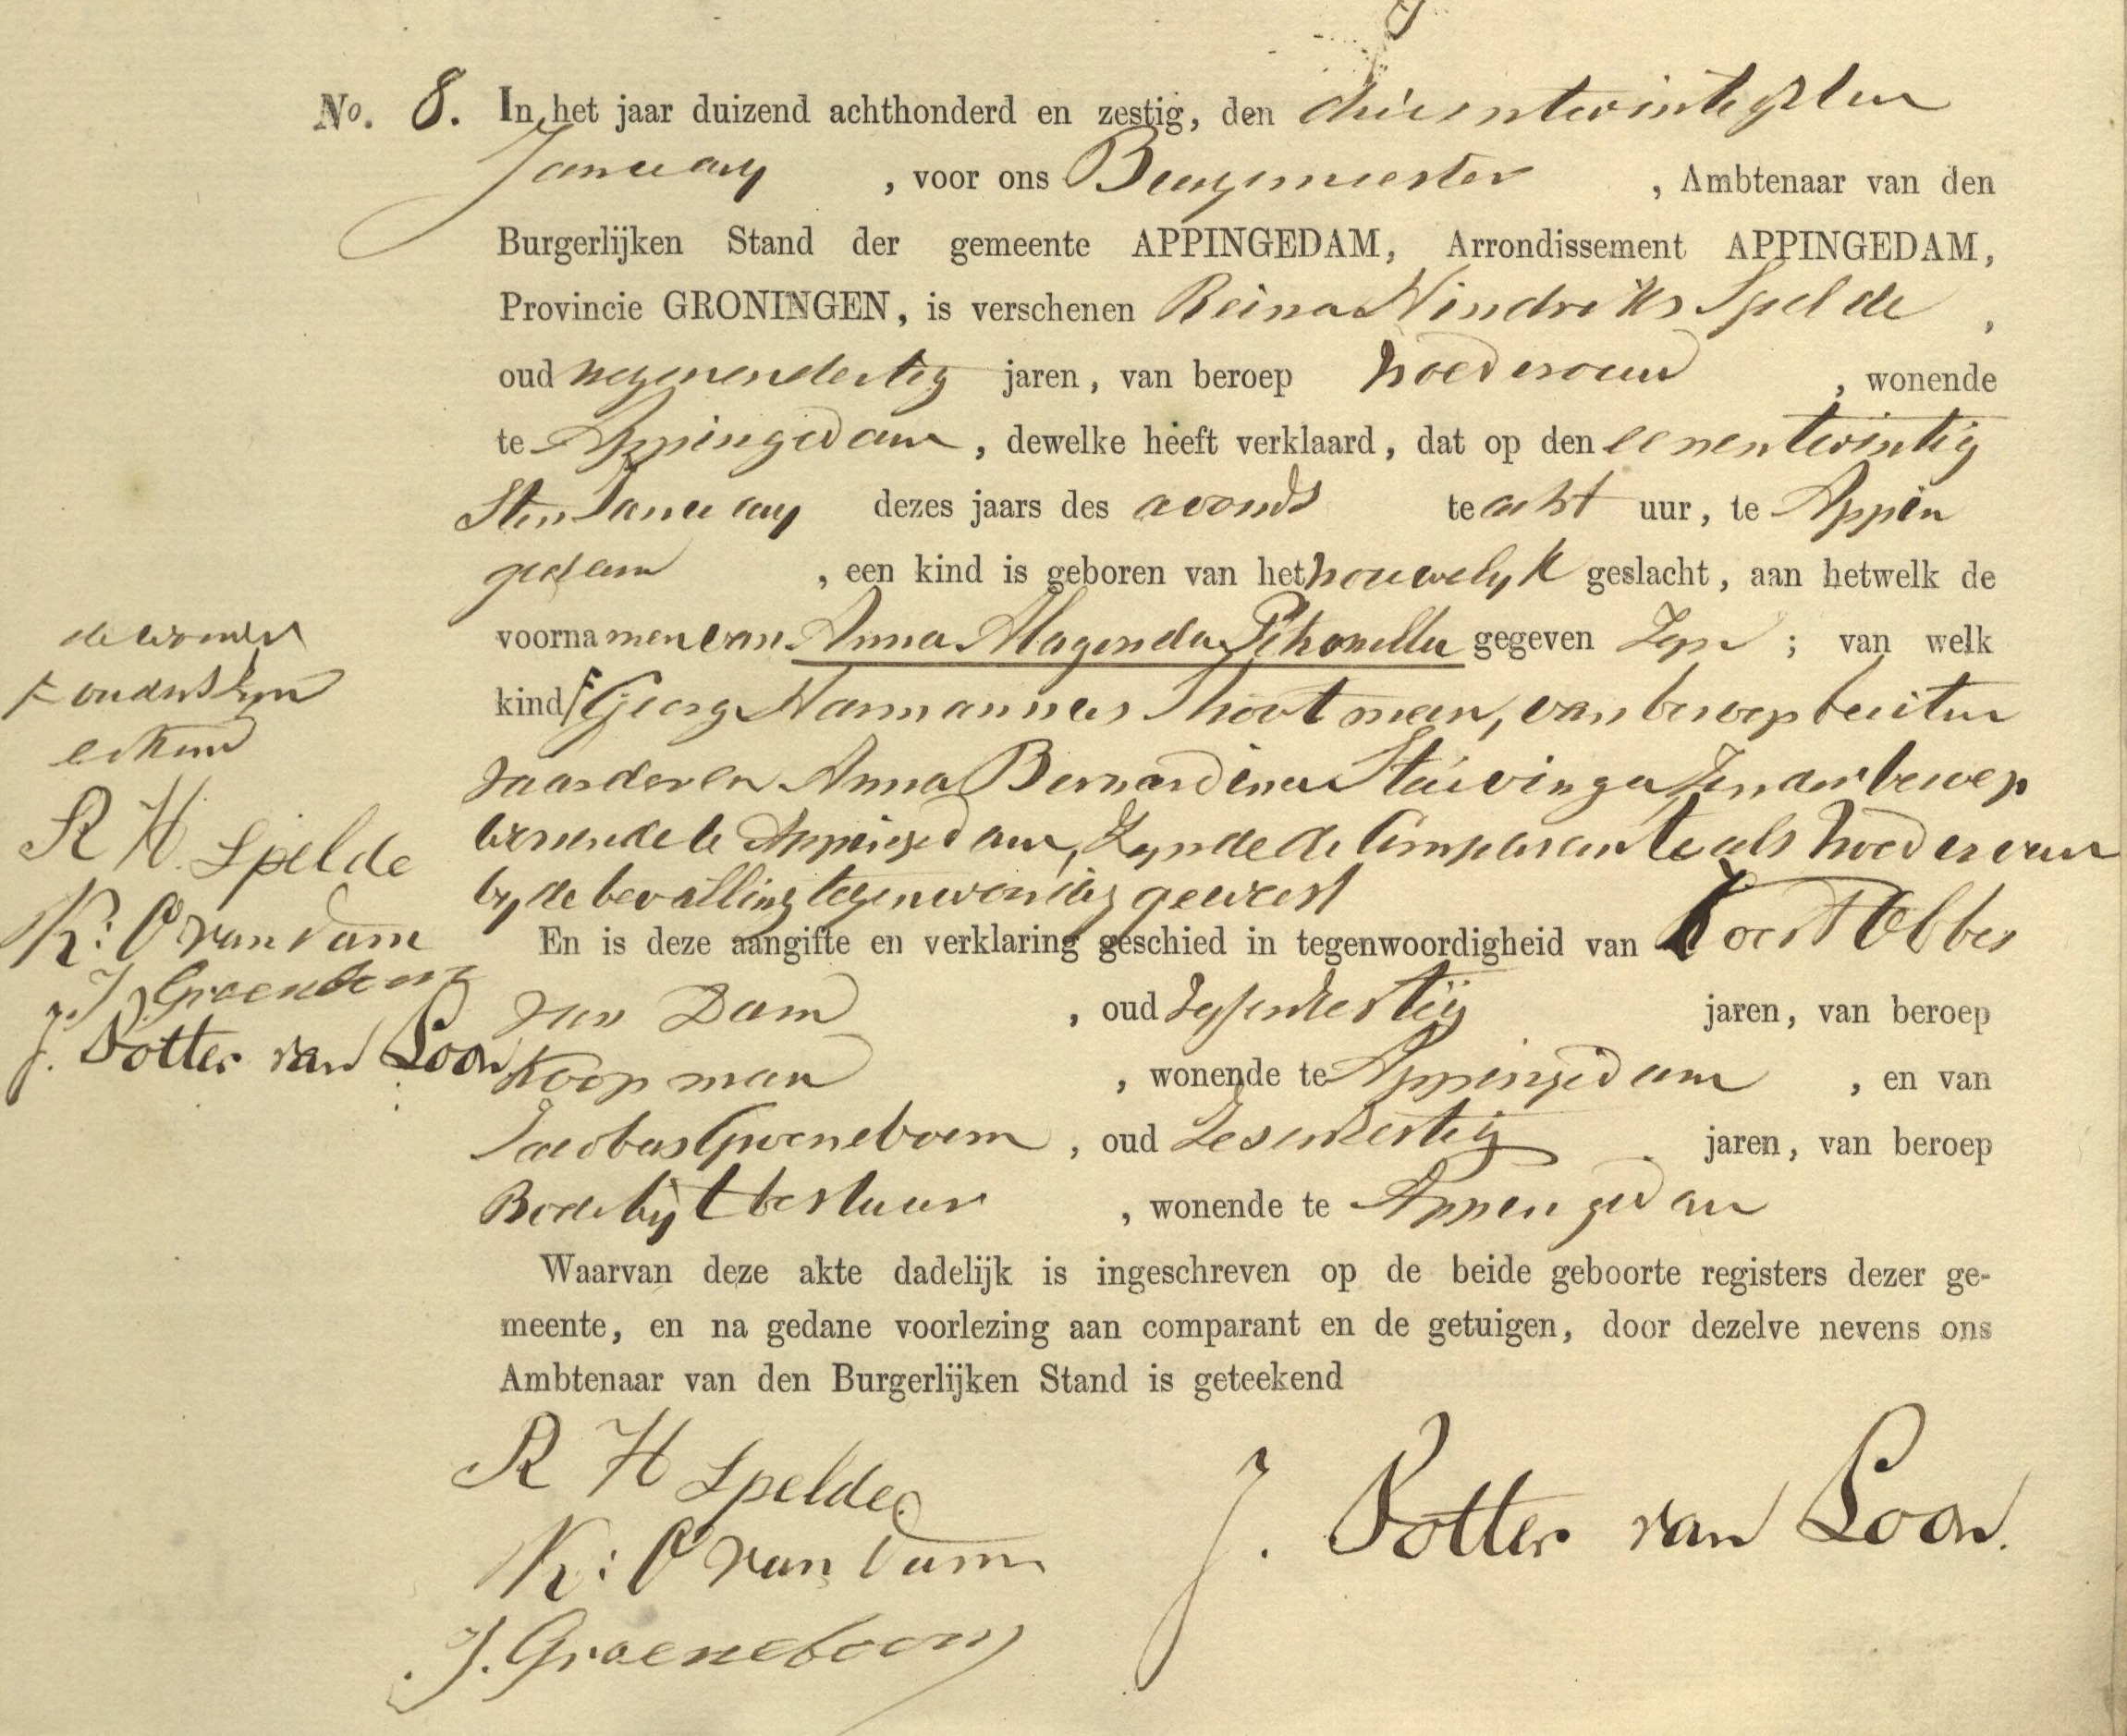 No. 8. In het jaar duizend achthonderd en zestig, den drieentwintigsten
January , voor ons Burgemeester , Ambtenaar van den
Burgerlijken Stand der gemeente APPINGEDAM, Arrondissement APPINGEDAM,
Provincie GRONINGEN, is verschenen Reina Hindriks Spelde ,
oud negenendertig jaren, van beroep vroedvrouw , wonende
te Appingedam , dewelke heeft verklaard, dat op den eenentwintig
sten January dezes jaars des avonds te acht uur, te Appin
gedam , een kind is geboren van het vrouwelyk geslacht, aan hetwelk de
voornamen van Anna Magenda Petronella gegeven zyn ; van welk
kind Georg Harmannus Shootman, van beroep buiten
vaarder en Anna Bernardina Stuivinga, zonder beroep
wonende te Appingedam, Zynde de Comparante als vroedvrouw
by de bevalling tegenwoordig geweest
En is deze aangifte en verklaring geschied in tegenwoordigheid van Koert Obbes
van Dam , oud vyfendertig jaren, van beroep
Koopman , wonende te Appingedam , en van
Jacobus Groeneboom , oud Zesendertig jaren, van beroep
Bode by t bestuur , wonende te Appingedam
Waarvan deze akte dadelijk is ingeschreven op de beide geboorte registers dezer ge-
meente, en na gedane voorlezing aan comparant en de getuigen, door dezelve nevens ons
Ambtenaar van den Burgerlijken Stand is geteekend
R H Spelde
K: O van Dam
J. Groeneboom
J. Potter van Loon.
de woorden
ouders zyn
erkend
R H Spelde
K: O van Dam
J. Groeneboom
J. Potter van Loon